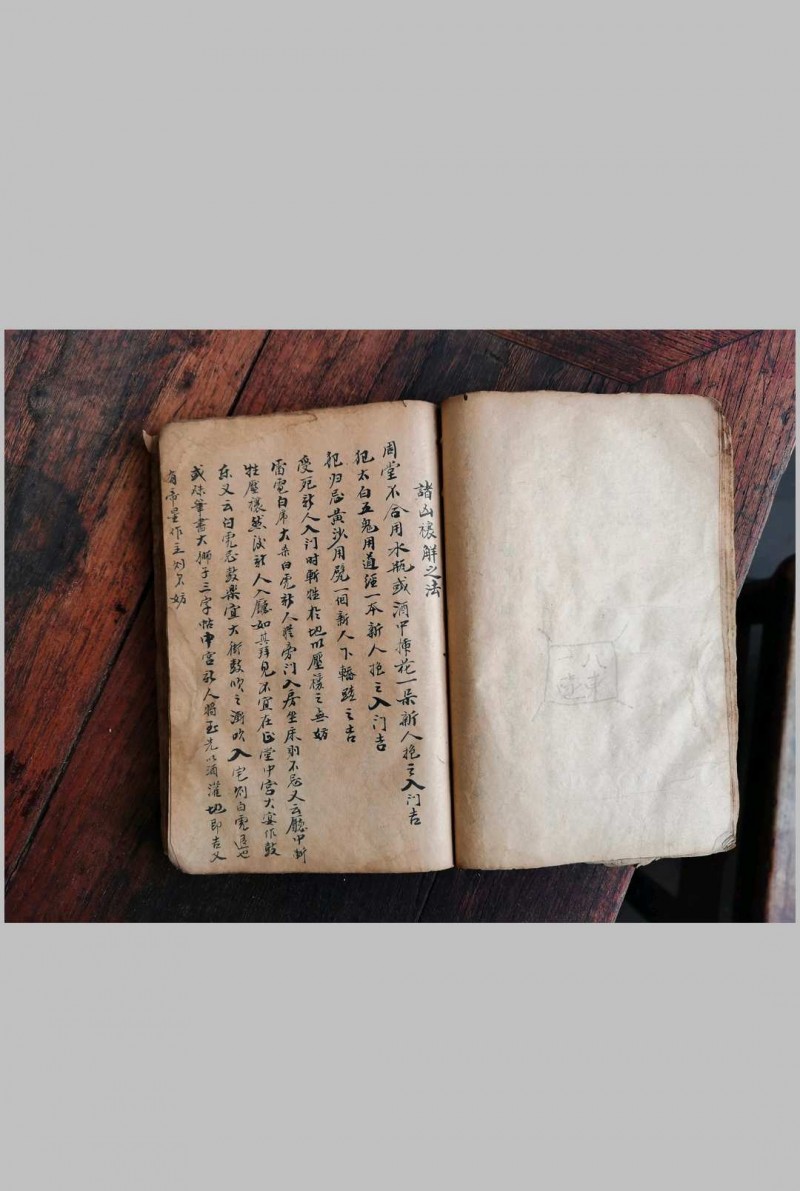 諸凶禳解之法
周堂不合用水瓶或酒中揷花一朵新人抱之入门吉
犯太白五鬼用道經一本新人抱之入门吉
犯归忌黄沙用凳一個新人下轎踏之吉
受死新人入门时斬牲於地以壓禳之无妨
雷霆白虎大杀白虎新人從旁门入房坐床則不忌又云廳中斬
牲壓禳然後新人入廳如其拜見不宜在正堂中宮大宴作鼓
乐又云白虎忌鼓樂宜大街鼓吹之漸吹入宅則白虎退也
或珠筆書大狮子三字帖中宮新人將至先以酒灌地即吉又
有帝星作主则不妨
八
東